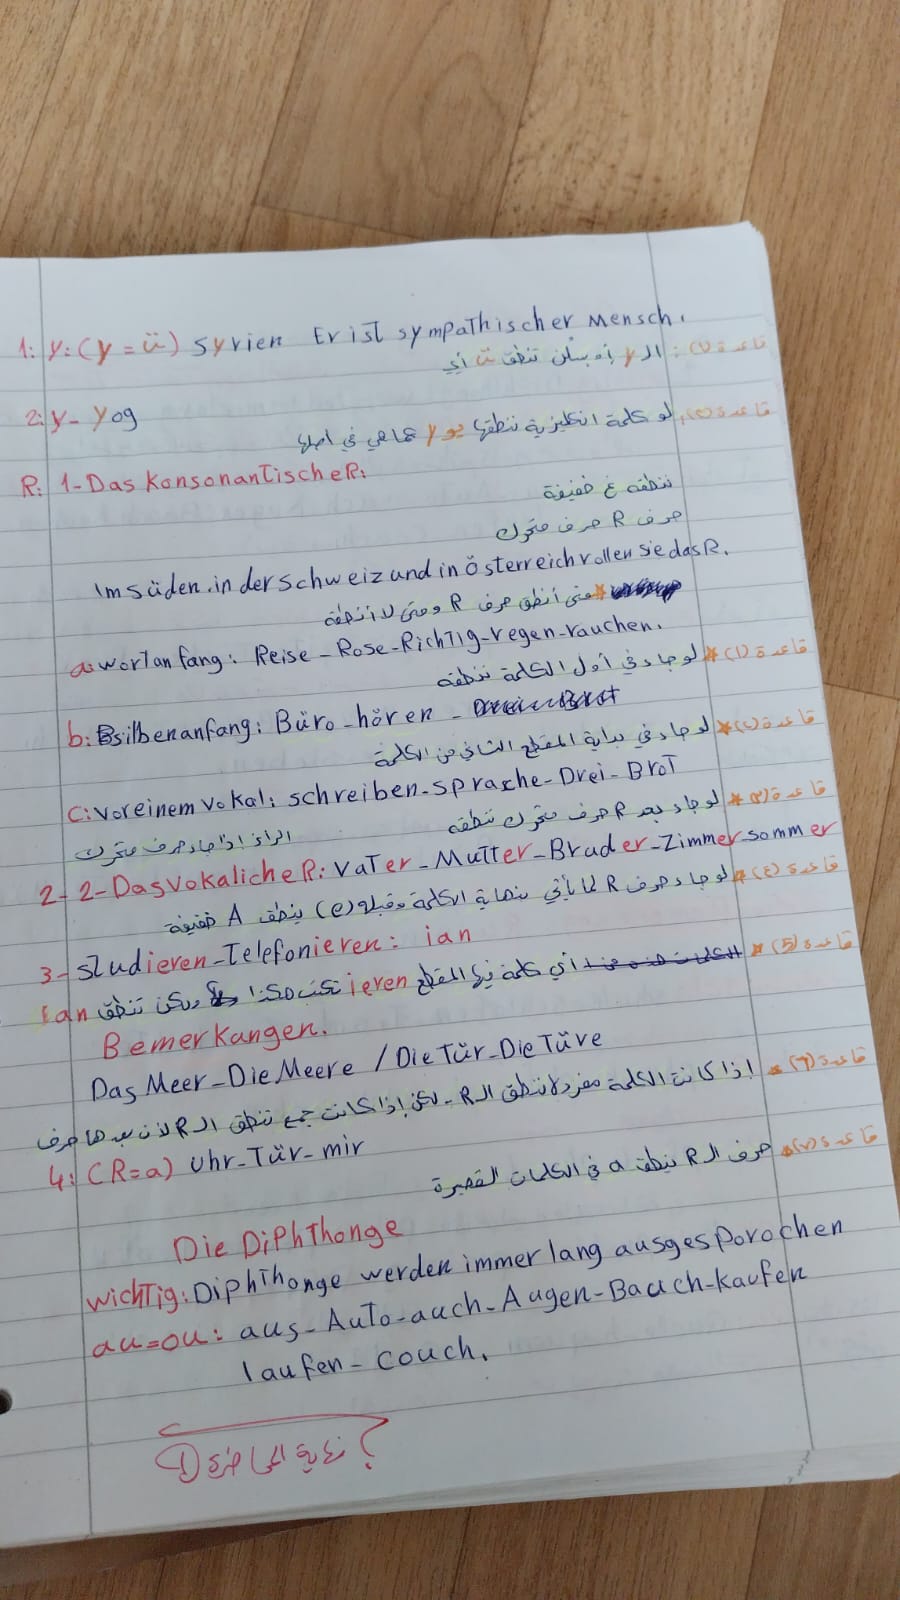 1: y: (y = ü) Syrien Er ist sympathischer Mensch.
قاعدة (١): الـ y تنطق ü أي
2: y - Yog
قاعدة (٢): لو كلمة انكليزية ننطقها يو y كما هي في اصلها
R: 1- Das Konsonantische R:
ننطقه غ خفيفة
حرف R حرف متحرك
Im süden. in der schweiz und in österreich rollen sie das R.
* متى أنطق حرف R ومتى لا أنطقه
a: wortanfang: Reise - Rose - Richtig - regen - rauchen.
قاعدة (١) * لو جاء في أول الكلمة ننطقه
b: Bsilbenanfang: Büro - hören -
قاعدة (٢) * لو جاء في بداية المقطع الثاني من الكلمة
C: vor einem vokal: schreiben - sprache - Drei - Brot
قاعدة (٣) * لو جاء بعد R حرف متحرك ننطقه
الراء إذا جاء حرف متحرك
2- 2- Das vokaliche R: vater - Mutter - Bruder - Zimmer - sommer
قاعدة (٤) * لو جاء حرف R لما يأتي بنهاية الكلمة وقبله (e) ينطق A خفيفة
3- studieren - Telefonieren: ian
قاعدة (5) * أي كلمة فيها المقطع ieren تكتب هكذا ولكن تنطق ian
Bemerkangen.
Das Meer - Die Meere / Die Tür - Die Türe
قاعدة (٦) * إذا كانت الكلمة مفرد لا تنطق الـ R - لكن إذا كانت جمع تنطق الـ R لأن بعدها حرف
4: (R=a) Uhr - Tür - mir
قاعدة (٧) * حرف الـ R ينطق a في الكلمات القصيرة
Die Diphthonge
wichtig: Diphthonge werden immer lang ausgesporochen
au = ou: aus - Auto - auch - Augen - Bauch - kaufen
laufen - couch.
نهاية المحاضرة